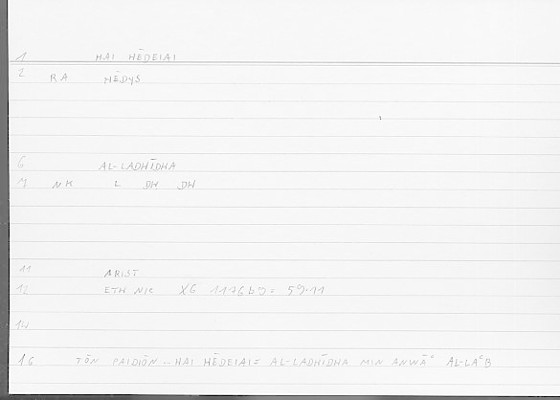 1 HAI HĒDEIAI
2 RA HĒDYS
6 AL-LADHĪDHA
7 NM L DH DH
11 ARIST
12 ETH NIC X6 1176b9 = 59.11
14
16 TŌN PAIDIŌN – HAI HĒDEIAI = AL-LADHĪDHA MIN ANWĀʿ AL-LAʿB